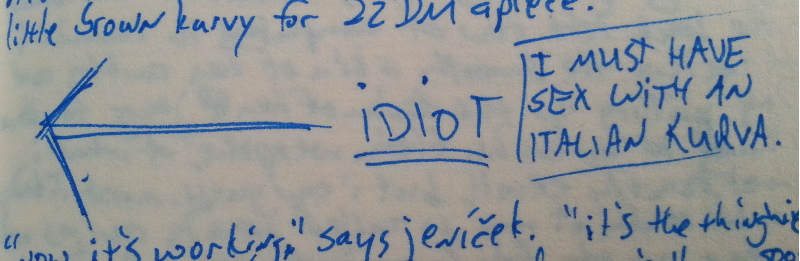 little brown kurvy for 22 DM apiece.
IDIOT
I MUST HAVE
SEX WITH AN
ITALIAN KURVA.
"now it's working," says jeníček. "it's the